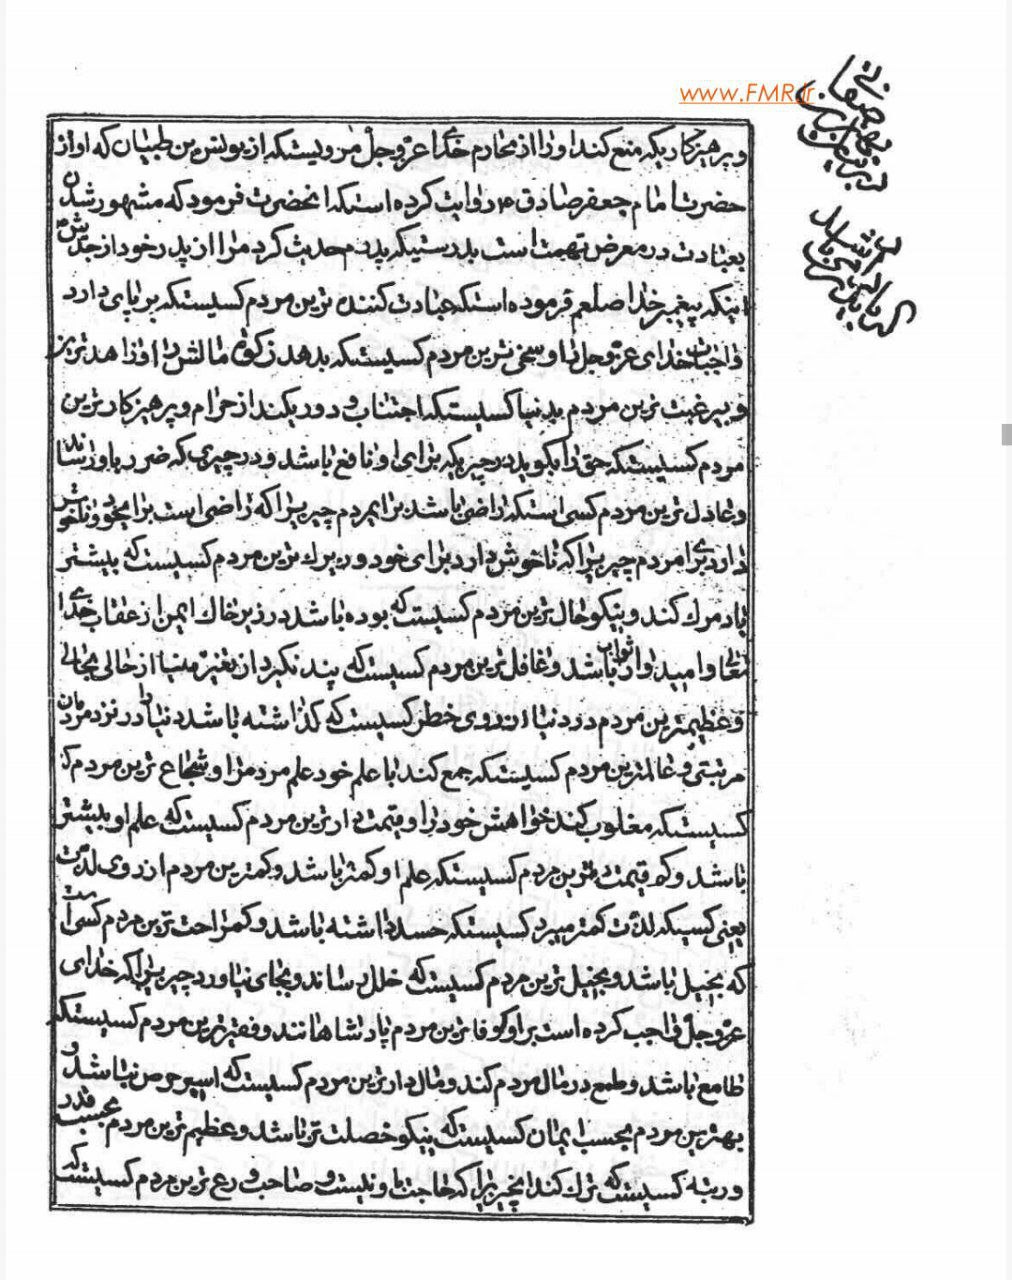 www.FMR.ir
و پرهیزکاریکه منع کند او را از محارم خدای عزوجل مرویستکه از یونس بن ظبیان که او از
حضرت امام جعفر صادق ع روایت کرده استکه انحضرت فرمود که مشهور شدن
بعبادت در معرض تهمت است بدرستیکه پدرم حدیث کرد مرا از پدر خود از جدش
اینکه پیغمبر خدا صلعم فرموده استکه عبادت کننده ترین مردم کسیستکه بر پای دارد
واجبات خدای عزوجل را و سخی ترین مردم کسیستکه بدهد زکوة مالش را و زاهد ترین
و بیرغبت ترین مردم بدنیا کسیستکه اجتناب و دوری کند از حرام و پرهیزکار ترین
مردم کسیستکه حق را بگوید در چیزیکه برای او نافع باشد و در چیزی که ضرر باو رساند
و عادل ترین مردم کسی استکه راضی باشد برای مردم چیزیرا که راضی است برای خود و ناخوش
دارد برای مردم چیزیرا که ناخوش دارد برای خود و زیرک ترین مردم کسیست که بیشتر
یاد مرک کند و نیکو حال ترین مردم کسیست که بوده باشد در زیر خاک ایمن از عقاب خدای
تعالی و امیدوار ثواب باشد و غافل ترین مردم کسیست که پند نکیرد از تغیر دنیا از حالی بحالی
و عظیمترین مردم در دنیا از روی خطر کسیست که نکذاشته باشد دنیا را در نزد مردمان
مرتبتی و عالمترین مردم کسیستکه جمع کند با علم خود علم مردم را و شجاع ترین مردم
کسیستکه مغلوب کند خواهش خود را و قیمت دار ترین مردم کسیست که علم او بیشتر
باشد و کم قیمت ترین مردم کسیستکه علم او کمتر باشد و کمترین مردم از روی لذت
یعنی کسیکه لذت کمتر میبرد کسیستکه حسد داشته باشد و کمراحت ترین مردم کسی است
که بخیل باشد و بخیل ترین مردم کسیست که خلل رساند و بجای نیاورد چیزیرا که خدای
عزوجل واجب کرده است بر او و کم وفا ترین مردم پادشاهانند و فقیر ترین مردم کسیستکه
طامع باشد و طمع در مال مردم کند و مال دار ترین مردم کسیست که اسیر حرص نباشد و
بهترین مردم بحسب ایمان کسیست که نیکو خصلت تر باشد و عظیم ترین مردم بحسب قدر
و رتبه کسیست که ترک کند انچیزیرا که حاجت باو نیست و صاحب ورع ترین مردم کسیست که